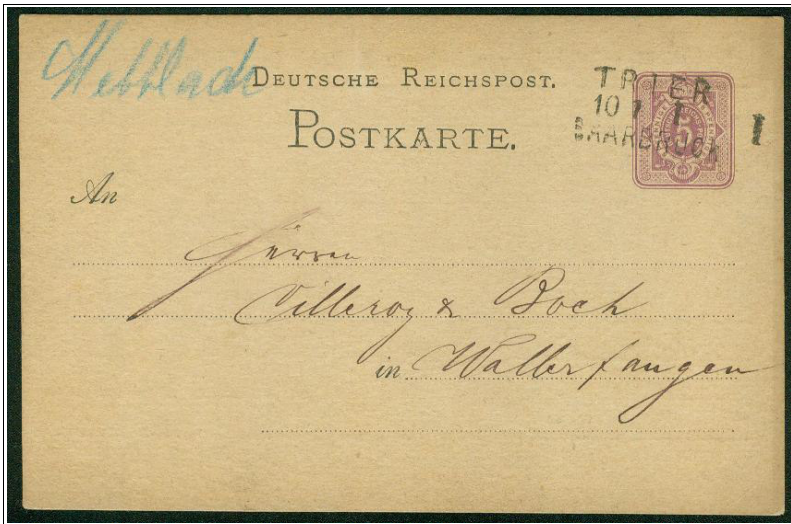 Mettlach
DEUTSCHE REICHSPOST.
POSTKARTE.
TRIER
10 7 I
SAARBRÜCK
I
An
Herren
Villeroy & Boch
in Wallerfangen